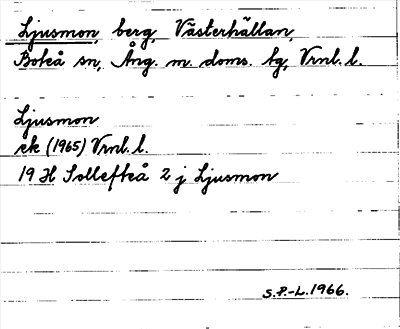 Ljusmon, berg, Västerhällan,
Boteå sn, Ång. m. doms. fg, Vrnl. l.
Ljusmon
ek (1965) Vrnl. l.
19 H Sollefteå 2 j Ljusmon
S.P.-L. 1966.